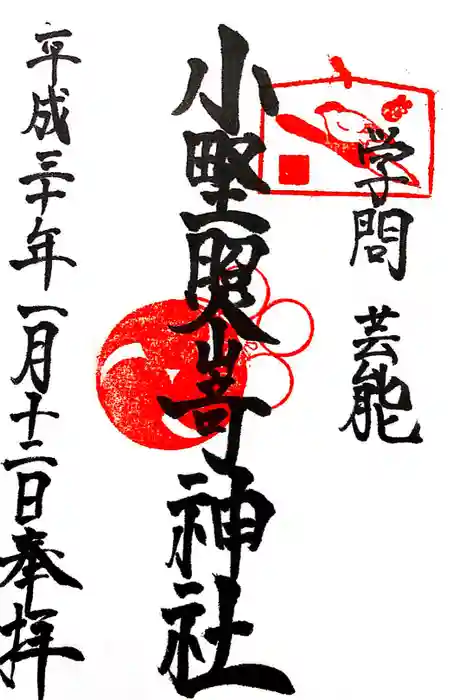 学問 芸能
小野照嵜神社
平成三十年一月十二日奉拝